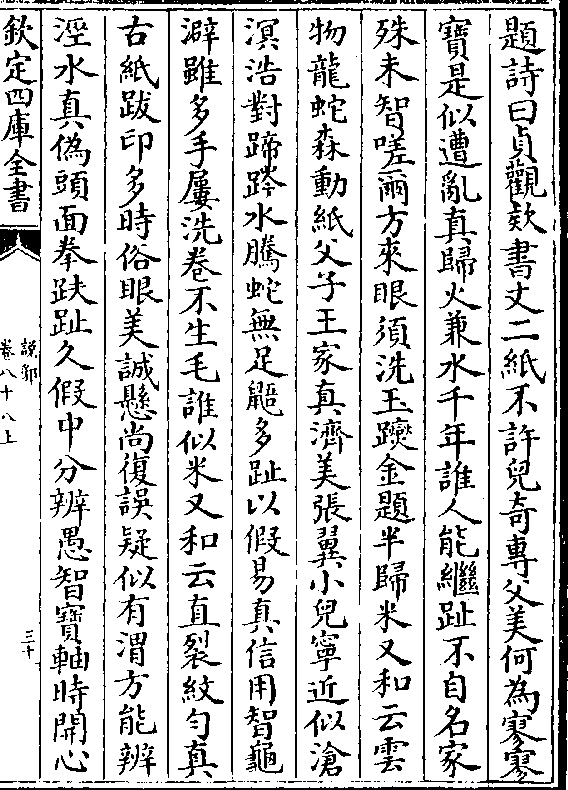 題詩曰貞觀欵書丈二紙不許兒奇專父美何為寥寥
寶是似遭亂真歸火兼水千年誰人能繼趾不自名家
殊未智嗟爾方來眼須洗玉躞金題半歸米又和云雲
物龍蛇森動紙父子王家真濟美張翼小兒寧近似滄
溟浩對蹄踤水騰蛇無足鼯多趾以假易真信用智龜
澼雖多手屢洗卷不生毛誰似米又和云直裂紋勻真
古紙跋印多時俗眼美誠懸尚復誤疑似有渭方能辨
涇水真偽頭面拳趺趾久假中分辨愚智寶軸時開心
欽定四庫全書
說郛
卷八十八上
三十